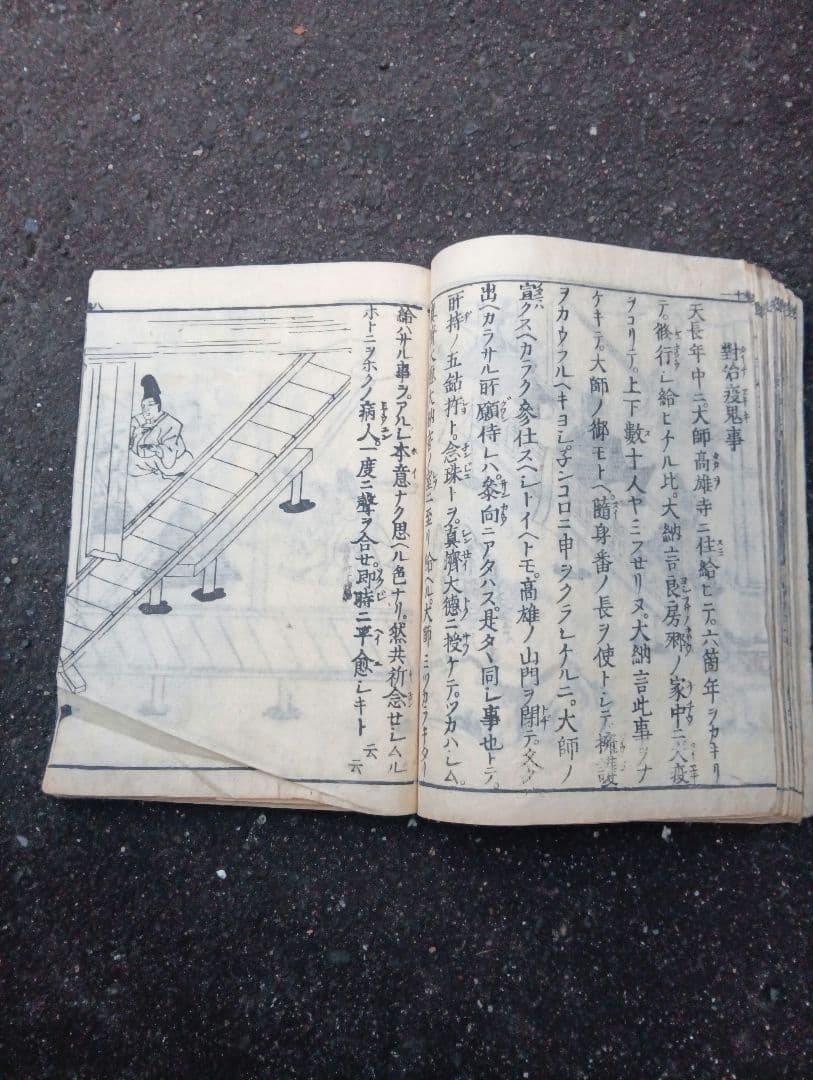 對治疫鬼事
天長年中ニ大師高雄寺ニ住給ヒテ。六箇年ヲカキリ
テ。修行シ給ヒケル比。大納言良房郷ノ家中ニ大疫
ヲコリテ。上下數十人ヤミフセリヌ。大納言此事ヲナ
ケキテ。大師ノ御モトヘ。隨身番ノ長ヲ使トシテ。擁護
ヲカウフルヘキヨシ。子ンコロニ申ヲクラレケルニ。大師ノ
クスヘカラク參仕スヘシトイヘトモ。高雄ノ山門ヲ閉テ。
出ヘカラサル所願侍レハ。參向ニアタハス。是タヽ同シ事也トテ。
所持ノ五鈷杵ト。念珠トヲ。真濟大德ニ授ケテ。ツカハシム。
大納言
至リ給ヘル大師ミツカラキタリ
給ハサル事ヲ。アルシ本意ナク思ヘル色ナリ。然共祈念セシムル
ホトニヲホクノ病人一度ニ聲ヲ合セ。即時ニ平愈シキト云云